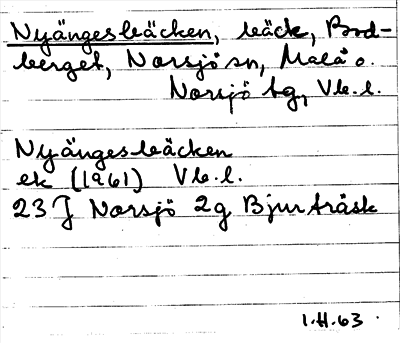 Nyängesbäcken, bäck, Bod-
berget, Norsjö sn, Malå o.
Norsjö tg, Vb. l.
Nyängesbäcken
ek (1961) Vb. l.
23 J Norsjö 2g Bjurträsk
1.H.63